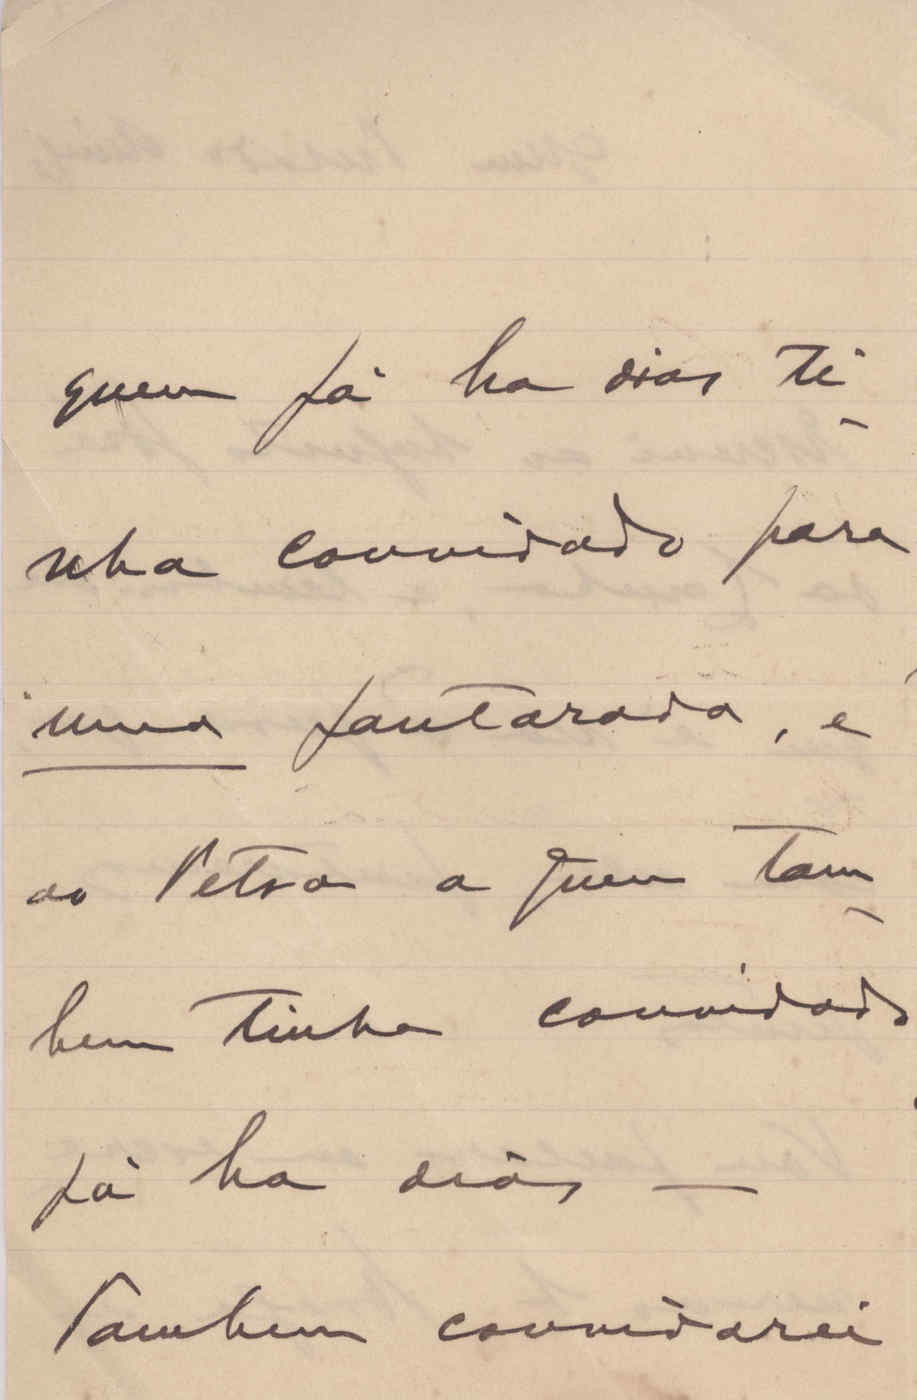 quem já ha dias ti-
nha convidado para
uma jantarada, e
ao Petra a quem tam-
bem tinha convidado
já ha dias —
Tambem convidarei